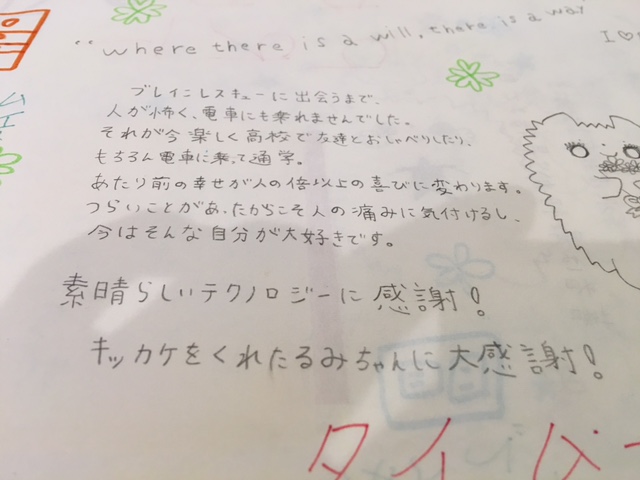 "where there is a will, there is a way
I ♡
ブレインレスキューに出会うまで、
人が怖く、電車にも乗れませんでした。
それが今楽しく高校で友達とおしゃべりしたり、
もちろん電車に乗って通学。
あたり前の幸せが人の倍以上の喜びに変わります。
つらいことがあったからこそ人の痛みに気付けるし、
今はそんな自分が大好きです。
素晴らしいテクノロジーに感謝!
キッカケをくれたるみちゃんに大感謝!